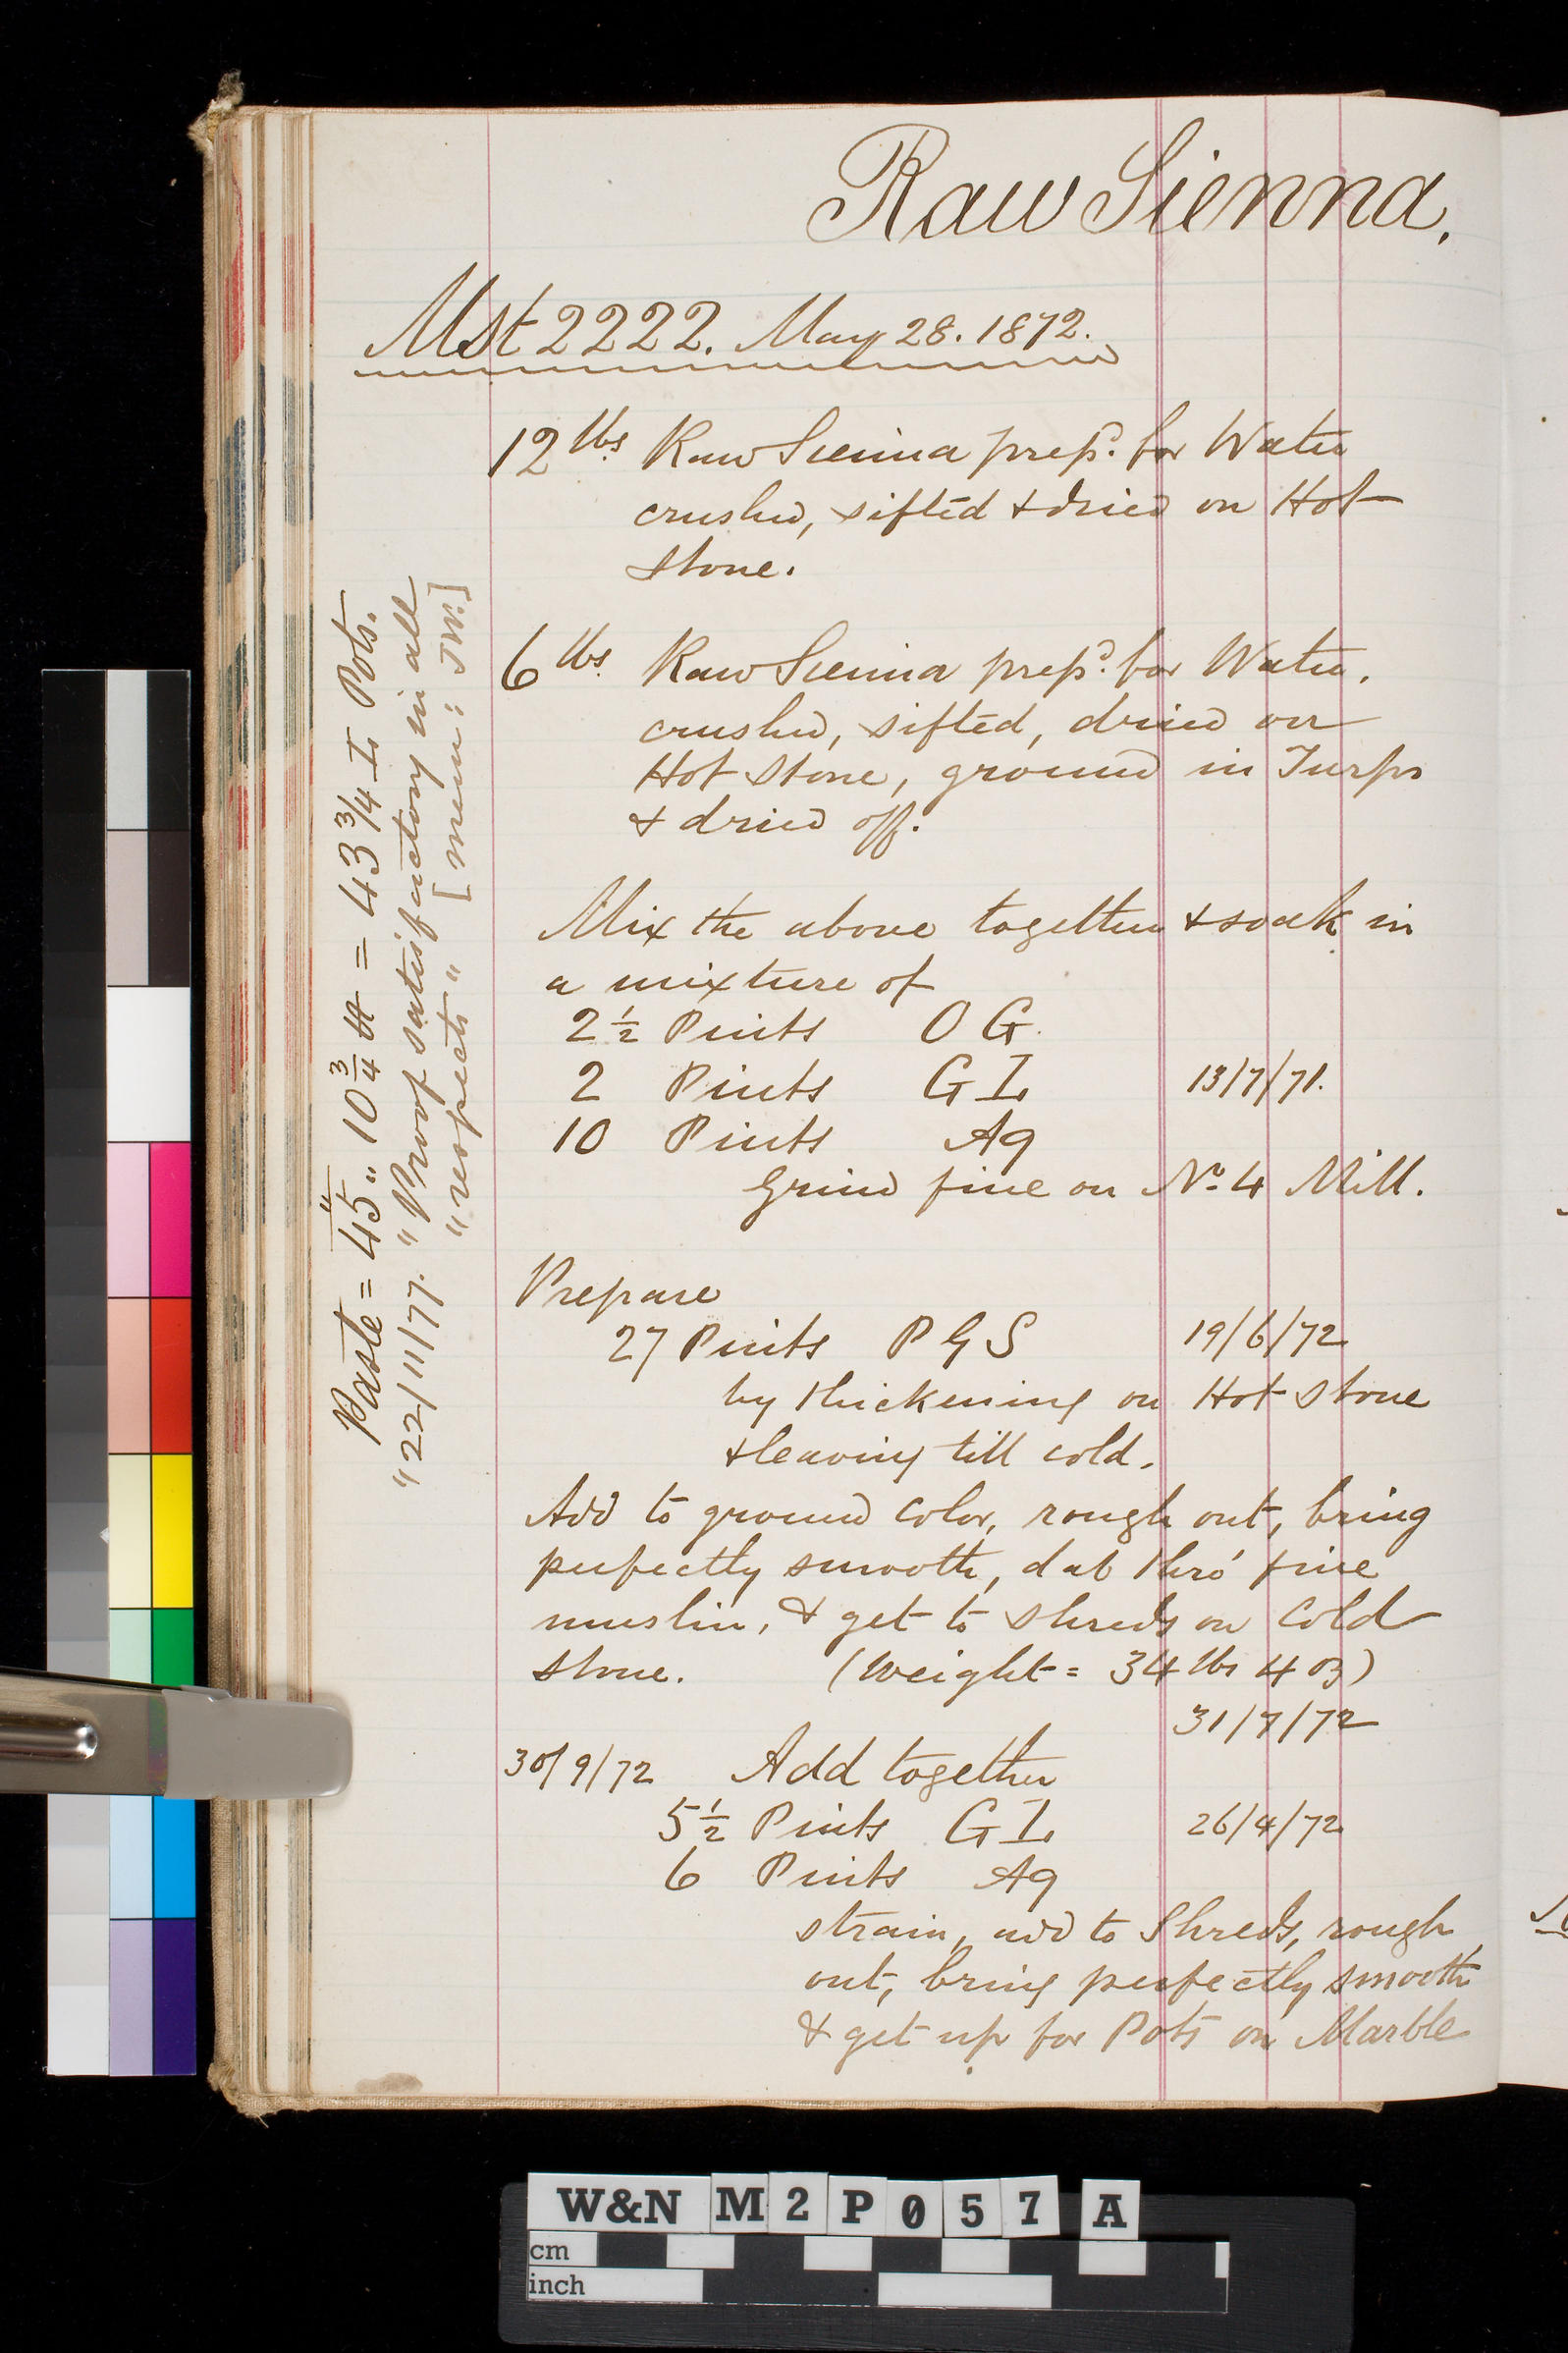 Raw Sienna.
Mst 2222. May 28. 1872.
12 lbs Raw Sienna prepd. for Water
crushed, sifted & dried on Hot
Stone.
6 lbs. Raw Sienna prepd. for Water,
crushed, sifted, dried on
Hot Stone, ground in Turps
& dried off.
Mix the above together & soak in
a mixture of
2 1/2 Pints O G.
2 Pints G I 13/7/71.
10 Pints Aq
Grind fine on No. 4 Mill.
Prepare
27 Pints P G S 19/6/72
by thickening on Hot Stone
& leaving till cold.
Add to ground color, rough out, bring
perfectly smooth, dab thro' fine
muslin, & get to Shreds on Cold
Stone. (Weight = 34 lbs 4 oz)
31/7/72
30/9/72 Add together
5 1/2 Pints G I 26/4/72
6 Pints Aq
strain, add to Shreds, rough
out, bring perfectly smooth
& get up for Pots on Marble
Paste = 45 " 10 3/4 lb = 43 3/4 I Pots.
"22/11/77. "Proof satisfactory in all
"respects" [mem: JW.]
W&N M2P057A
cm
inch